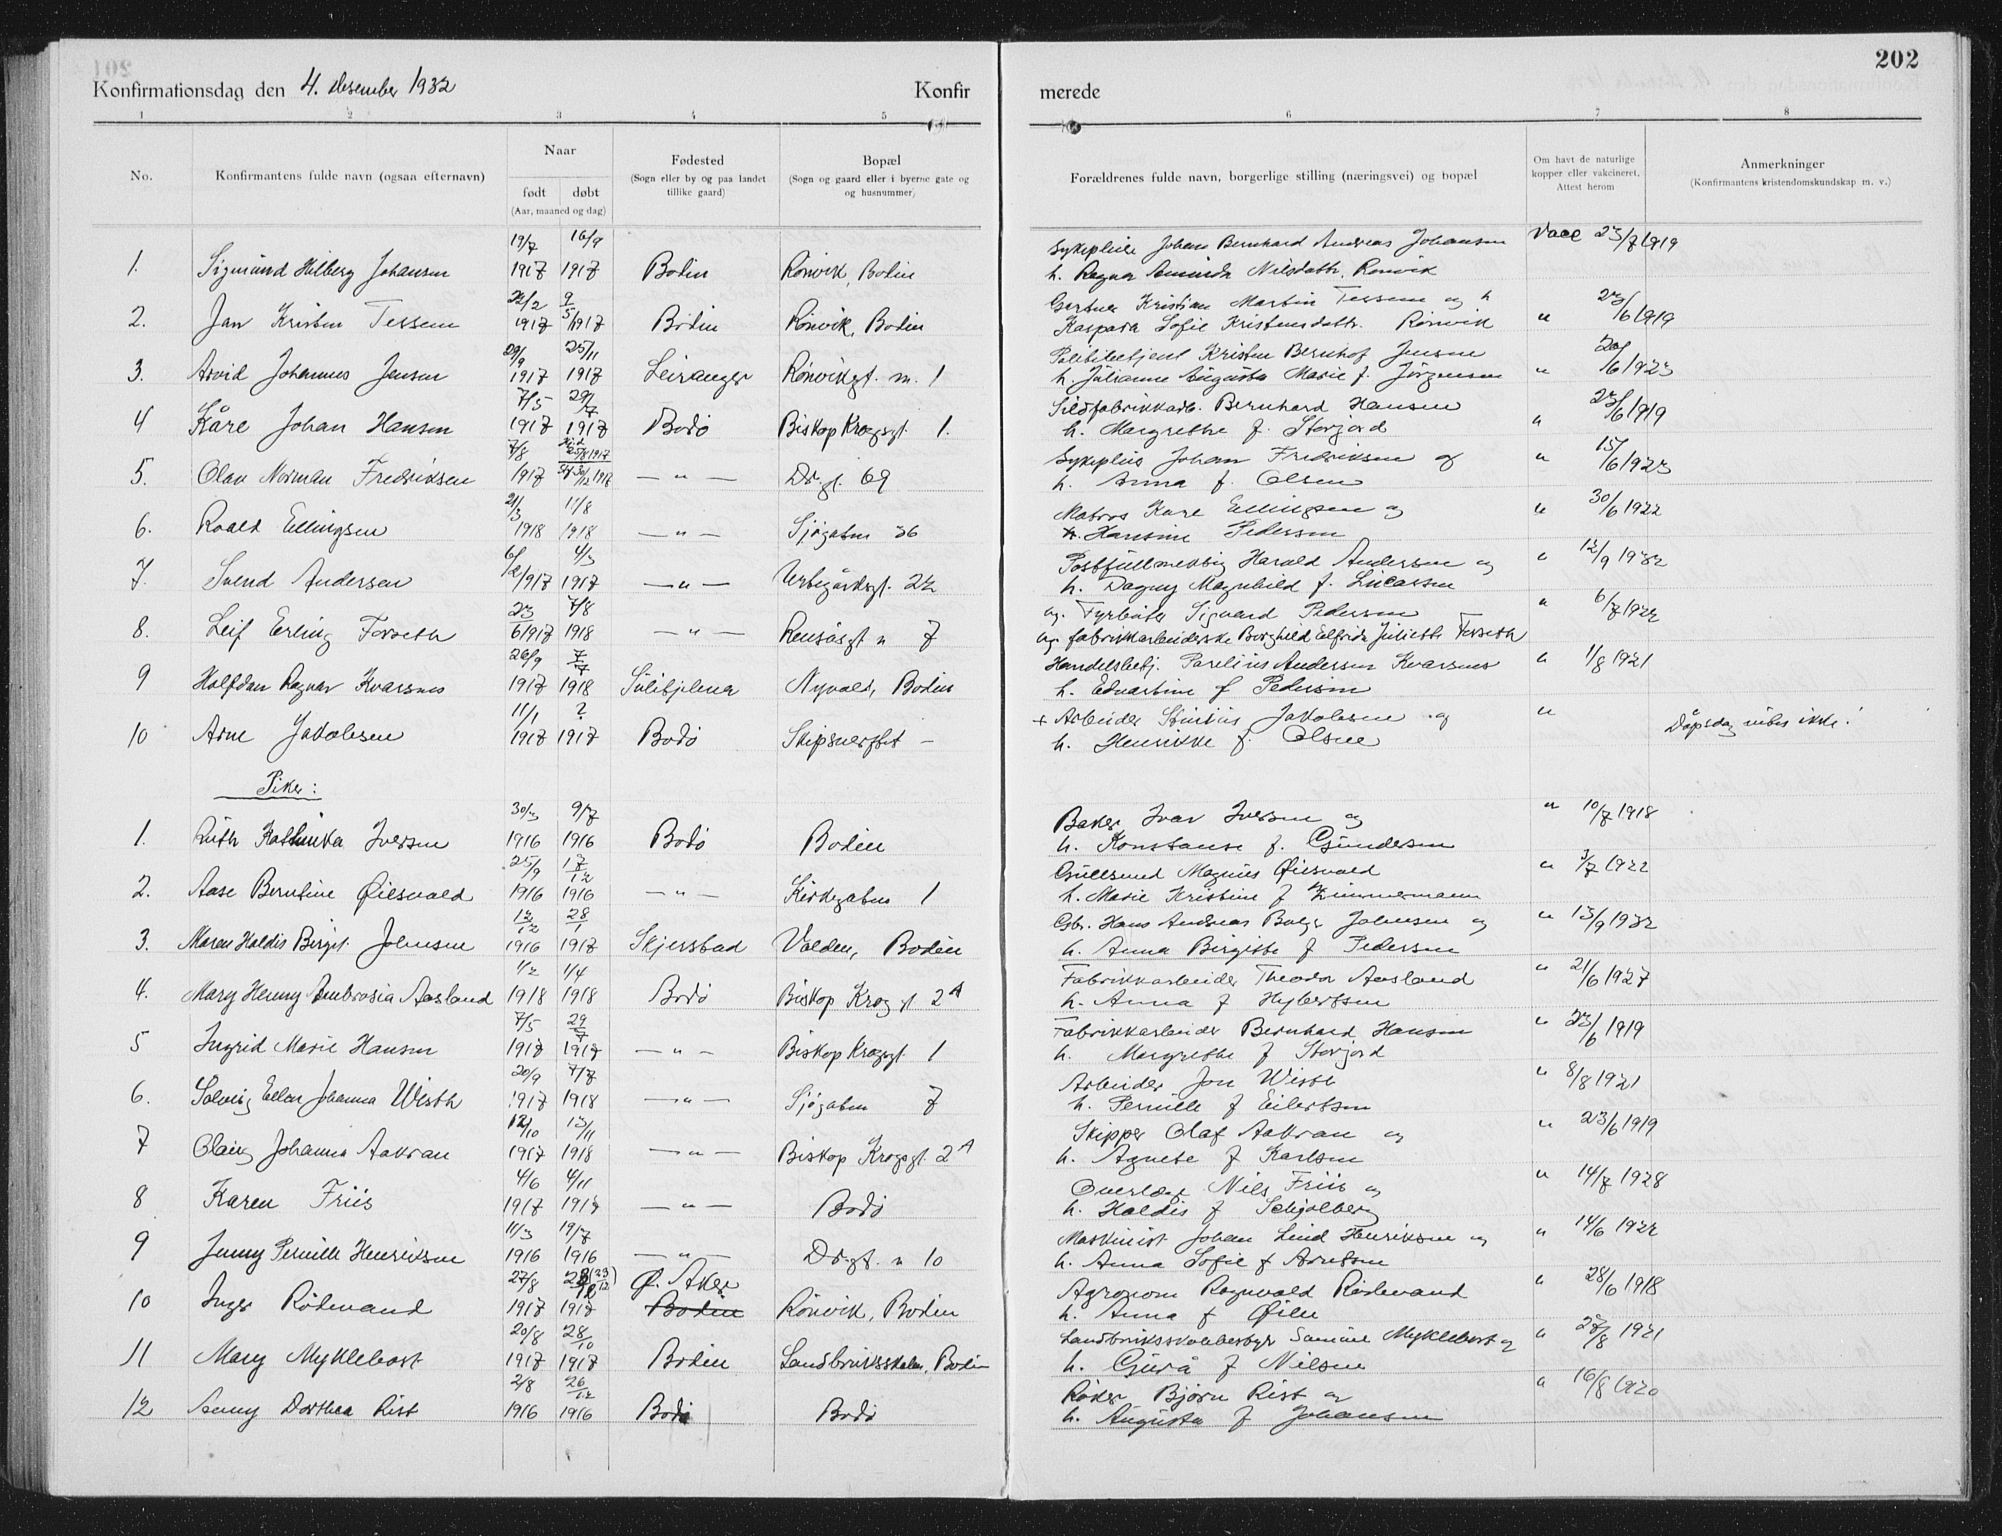 202
Konfirmationsdag den 4. desember 1932 Konfirmerede
1 2 3 4 5 6 7 8
No.
Konfirmantens fulde navn (ogsaa efternavn)
Naar
født døbt
(Aar, maaned og dag)
Fødested
(Sogn eller by og paa landet
tillike gaard)
Bopæl
(Sogn og gaard eller i byerne gate og
og husnummer)
Forældrenes fulde navn, borgerlige stilling (næringsvei) og bopæl
Om havt de naturlige
kopper eller vakcineret,
Attest herom
Anmerkninger
(Konfirmantens kristendomskundskap m. v.)
19/7 16/9 Sykepleier Johan Bernhard Andreas Johansen Vacc 23/7 1919
1. Sigmund Hilberg Johansen 1917 1917 Bodin Rønvik, Bodin h. Ragna Nilsdatter, Rønvik
22/2 9/5 Gartner Kristian Martin Tessem og h 23/6 1919
2. Jan Kristen Tessem 1917 1917 Bodin Rønvik, Bodin Kaspara Sofie Kristensdattr. Rønvik "
29/9 25/11 Politibetjent Kristen Bernhof Jensen
3. Arvid Johannes Jensen 1917 1917 Leiranger Rønvikgt. n. 1 h. Julianne Augusta Marie f. Jørgensen " /6 1923
7/5 29/7 Sildfabrikkarb. Bernhard Hansen 23/6 1919
4 Kåre Johan Hansen 1917 1917 Bodø Biskop Krogsgt 1. h. Margrethe f. Storjord "
7/8 25/8 1917 Sykepleier Johan Fredriksen og " 15/6 1923
5. Olav Norman Fredriksen 1917 30/12 1918 — " — Dr.gt. 69 h. Anna f. Olsen
21/3 11/8 Matros Kare Ellingsen og " 30/6 1922
6. Roald Ellingsen 1918 1918 — " — Sjøgaten 36 h. Hansine Pedersen
6/2 4/3 Postfullmektig Harald Andersen og " 12/9 1932
7. Svend Andersen 1917 1917 — " — 22 h. Dagny Magnhild f. Lucassen
23 7/8 ug. Fyrbøter Sigvard Pedersen " 6/7 1922
8. Leif Erling Forseth 6/1917 1918 — " — Rensåsgt n 7 ug. fabrikkarbeiderske Borghild Elfrida Juliette Forseth
26/9 7/7 Handelsbetj. Parelius Andersen Kvarsnes " 11/8 1921
9 Halfdan Ragnar Kvarsnes 1917 1918 Sulitjelma Nyvold, Bodin h. Edvardine f Pedersen
11/1 ? + Arbeider Jakobsen og "
10 Arne Jakobsen 1917 1917 Bodø Skipsverftet — h. Henrikke f. Olsen Dåpsdag vites ikke!
Piker:
30/3 9/7 Baker Ivar Iversen og " 10/7 1918
1. Ruth Kathinka Iversen 1916 1916 Bodø Bodin h. Konstanse f. Gundersen
25/9 17/12 Gullsmed Magnus Øiesvold " 3/7 1922
2. Aase Berntine Øiesvold 1916 1916 — " — Kirkegaten 1 h. Marie Kristine f Zimmermann
12/12 28/1 Gbr. Hans Andreas Johnsen og " 13/9 1932
3. Maren Haldis Birgit. Johnsen 1916 1917 Skjerstad Valden, Bodin h. Anna Birgitte f Pedersen
1/2 1/4 Fabrikkarbeider Theodor Aasland " 21/6 1927
4. Mary Henny Ambrosia Aasland 1918 1918 Bodø Biskop Krog gt 2A h. Anna f Hybertsen
7/5 29/7 Fabrikkarbeider Bernhard Hansen " 23/6 1919
5 Ingrid Marie Hansen 1917 1917 — " — Biskop Krogsgt. 1 h. Margrethe f Storjord
20/9 7/7 Arbeider Jon Wisth " 8/8 1921
6. Solveig Ellen Johanna Wisth 1917 1918 — " — Sjøgaten 7 h. Pernille f Eilertsen
12/10 13/11 Skipper Olaf Aakran og " 23/6 1919
7 Olaug Johanna Aakran 1917 1918 — " — Biskop Krogsgt. 2A h. Agnete f Karlsen
4/6 4/11 Overlæge Nils Friis og " 14/7 1928
8 Karen Friis 1917 1917 — " — Bodø h. Haldis f Schjølberg
11/3 19/7 Maskinist Johan Lind Henriksen og " 14/6 1922
9 Jenny Pernille Henriksen 1916 1916 — " — Dr.gt. n 10 h. Anna Sofie f Arntsen
27/8 (23/12) Ø. Aker Agronom Ragnvald Rødevand " 28/6 1918
10 Inger Rødevand 1917 1917 Bodin Rønvik, Bodin h. Anna f Øien
20/8 28/10 Landbruksskolebestyr Samuel Myklebost og " 27/8 1921
11 Mary Myklebost 1917 1917 Bodin Landbruksskolen, Bodin h. Gurå f Nilsen
2/8 26/12 Bjørn Rist og " 16/8 1920
12 Jenny Dorthea Rist 1916 1916 Bodø Bodø h. Augusta f Johansen